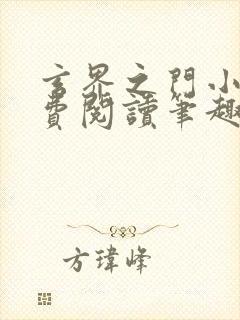 玄界之門小
費閱讀筆趣
方瑋峰